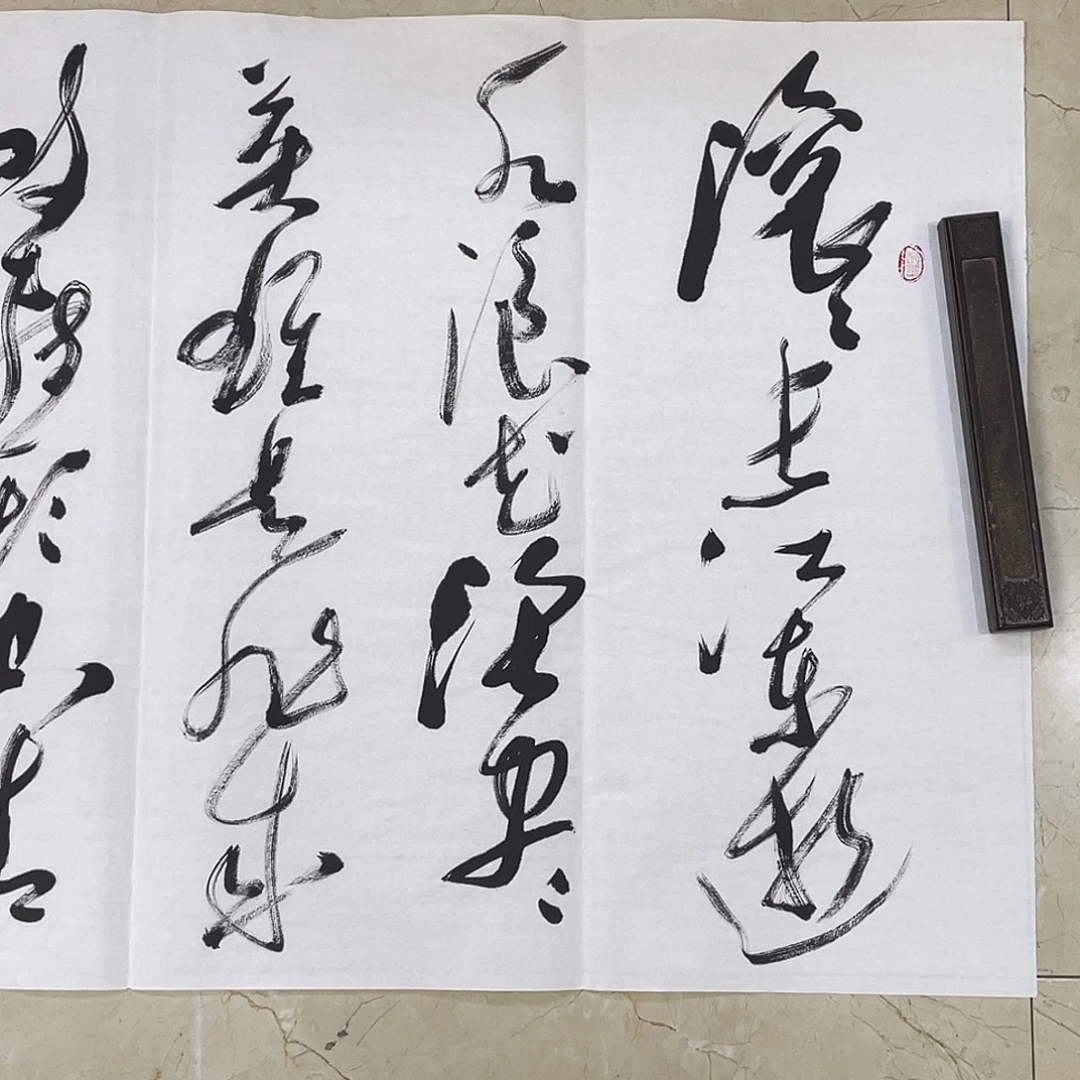 滚滚长江东逝
水浪花淘尽
英雄是非成
败转头空青